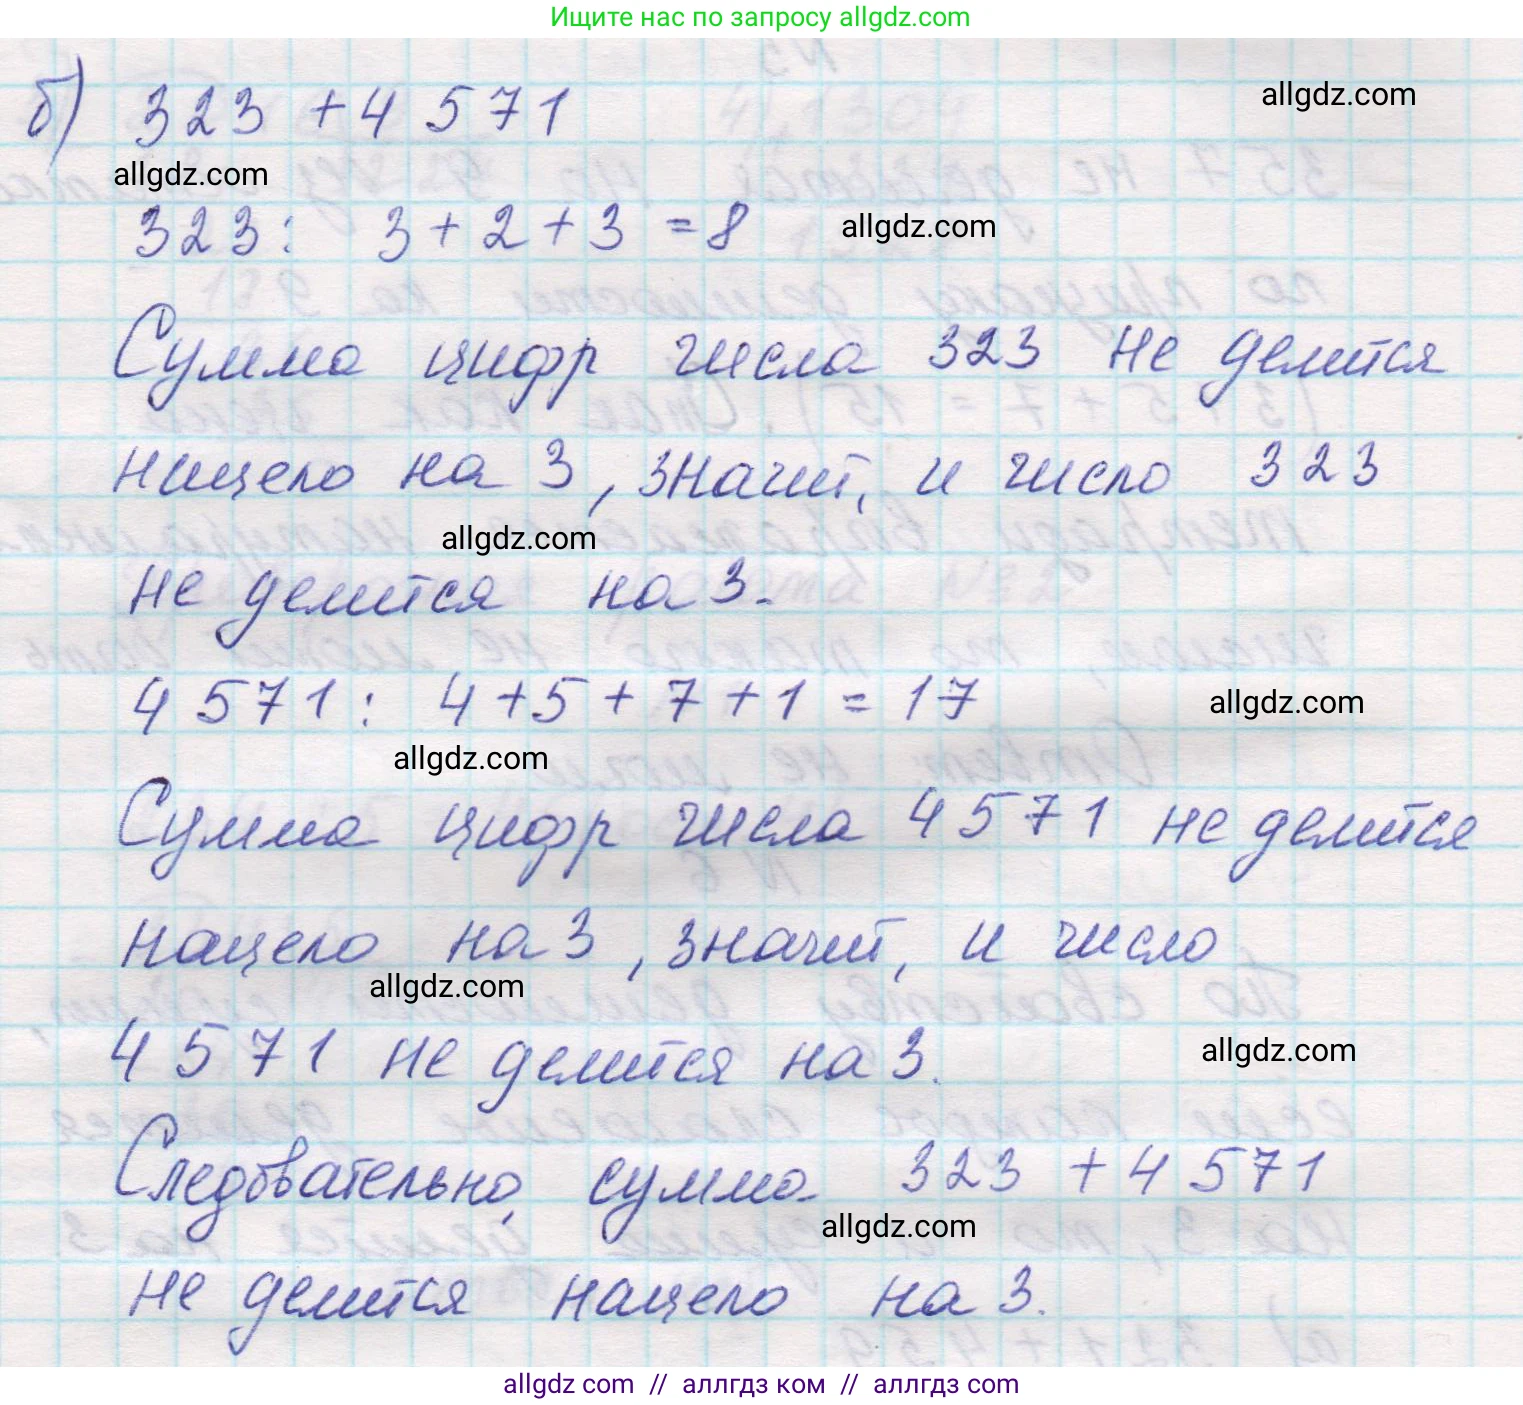 Ищите нас по запросу allgdz.com
б) 323 + 4 571
allgdz.com
allgdz.com
323: 3 + 2 + 3 = 8
allgdz.com
Сумма цифр числа 323 не делится
нацело на 3, значит, и число 323
allgdz.com
не делится на 3.
4 571: 4 + 5 + 7 + 1 = 17
allgdz.com
allgdz.com
Сумма цифр числа 4 571 не делится
нацело на 3, значит, и число
allgdz.com
4 571 не делится на 3.
allgdz.com
Следовательно, сумма 323 + 4 571
allgdz.com
не делится нацело на 3.
allgdz com // аллгдз ком // аллгдз com